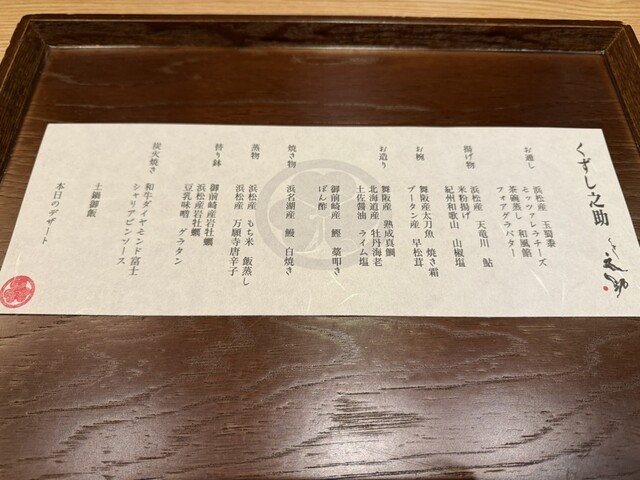 くずし之助
お通し
浜松産 玉蜀黍
モッツァレラチーズ
茶碗蒸し 和風餡
フォアグラバター
揚げ物
浜松産 天竜川 鮎
米粉揚げ
紀州和歌山 山椒塩
お椀
舞阪産太刀魚 焼き霜
ブータン産 早松茸
お造り
舞阪産 熟成真鯛
北海道産 牡丹海老
土佐醤油 ライム塩
御前崎産 鰹 藁叩き
ぽん酢
焼き物
浜名湖産 鰻 白焼き
蒸物
浜松産 もち米 飯蒸し
浜松産 万願寺唐辛子
替り鉢
御前崎産岩牡蠣
浜松産岩牡蠣
豆乳味噌 グラタン
炭火焼き
和牛ダイヤモンド富士
シャリアピンソース
土鍋御飯
本日のデザート